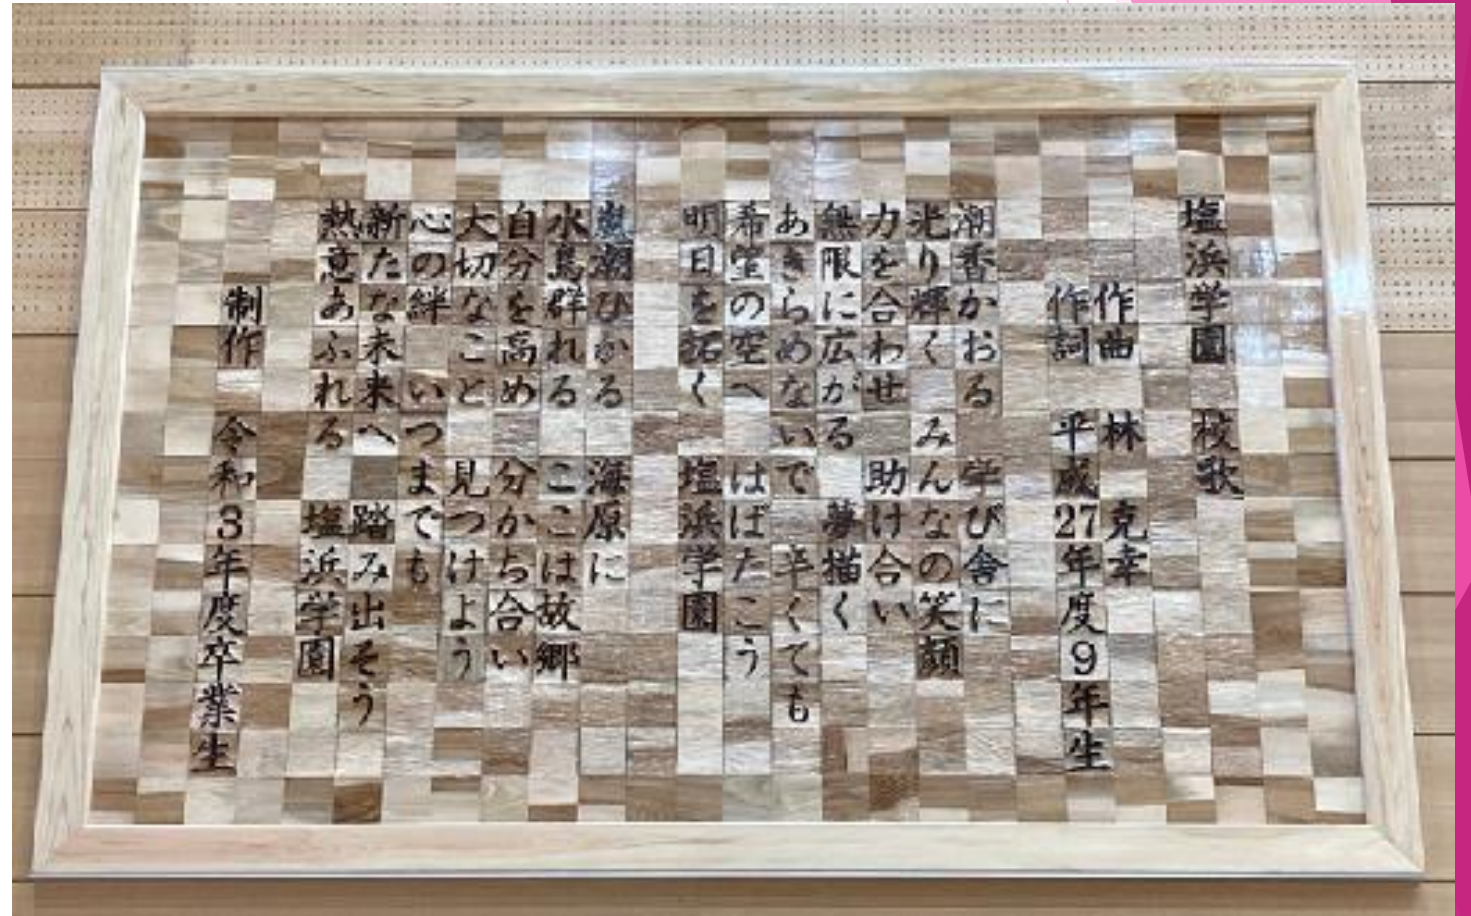 塩浜学園 校歌
作曲 林 克幸
作詞 平成27年度9年生
潮香かおる 学び舎に
光り輝く みんなの笑顔
力を合わせ 助け合い
無限に広がる 夢描く
あきらめないで 辛くても
希望の空へ はばたこう
明日を拓く 塩浜学園
潮ひかる 海原に
水鳥群れる ここは故郷
自分を高め 分かち合い
大切なこと 見つけよう
心の絆 いつまでも
新たな未来へ 踏み出そう
熱意あふれる 塩浜学園
制作 令和3年度卒業生